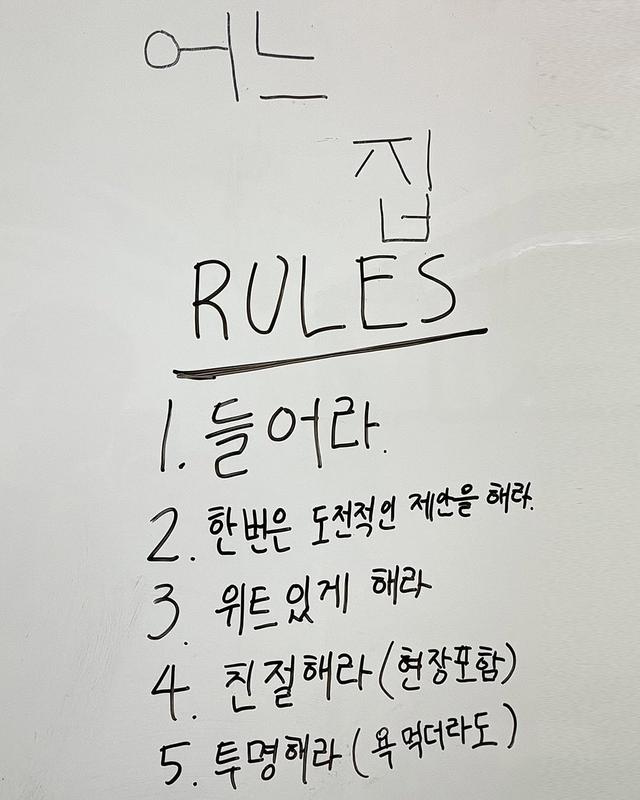 어느
집
RULES
1. 들어라.
2. 한번은 도전적인 제안을 해라.
3. 위트있게 해라
4. 친절해라(현장포함)
5. 투명해라(욕먹더라도)